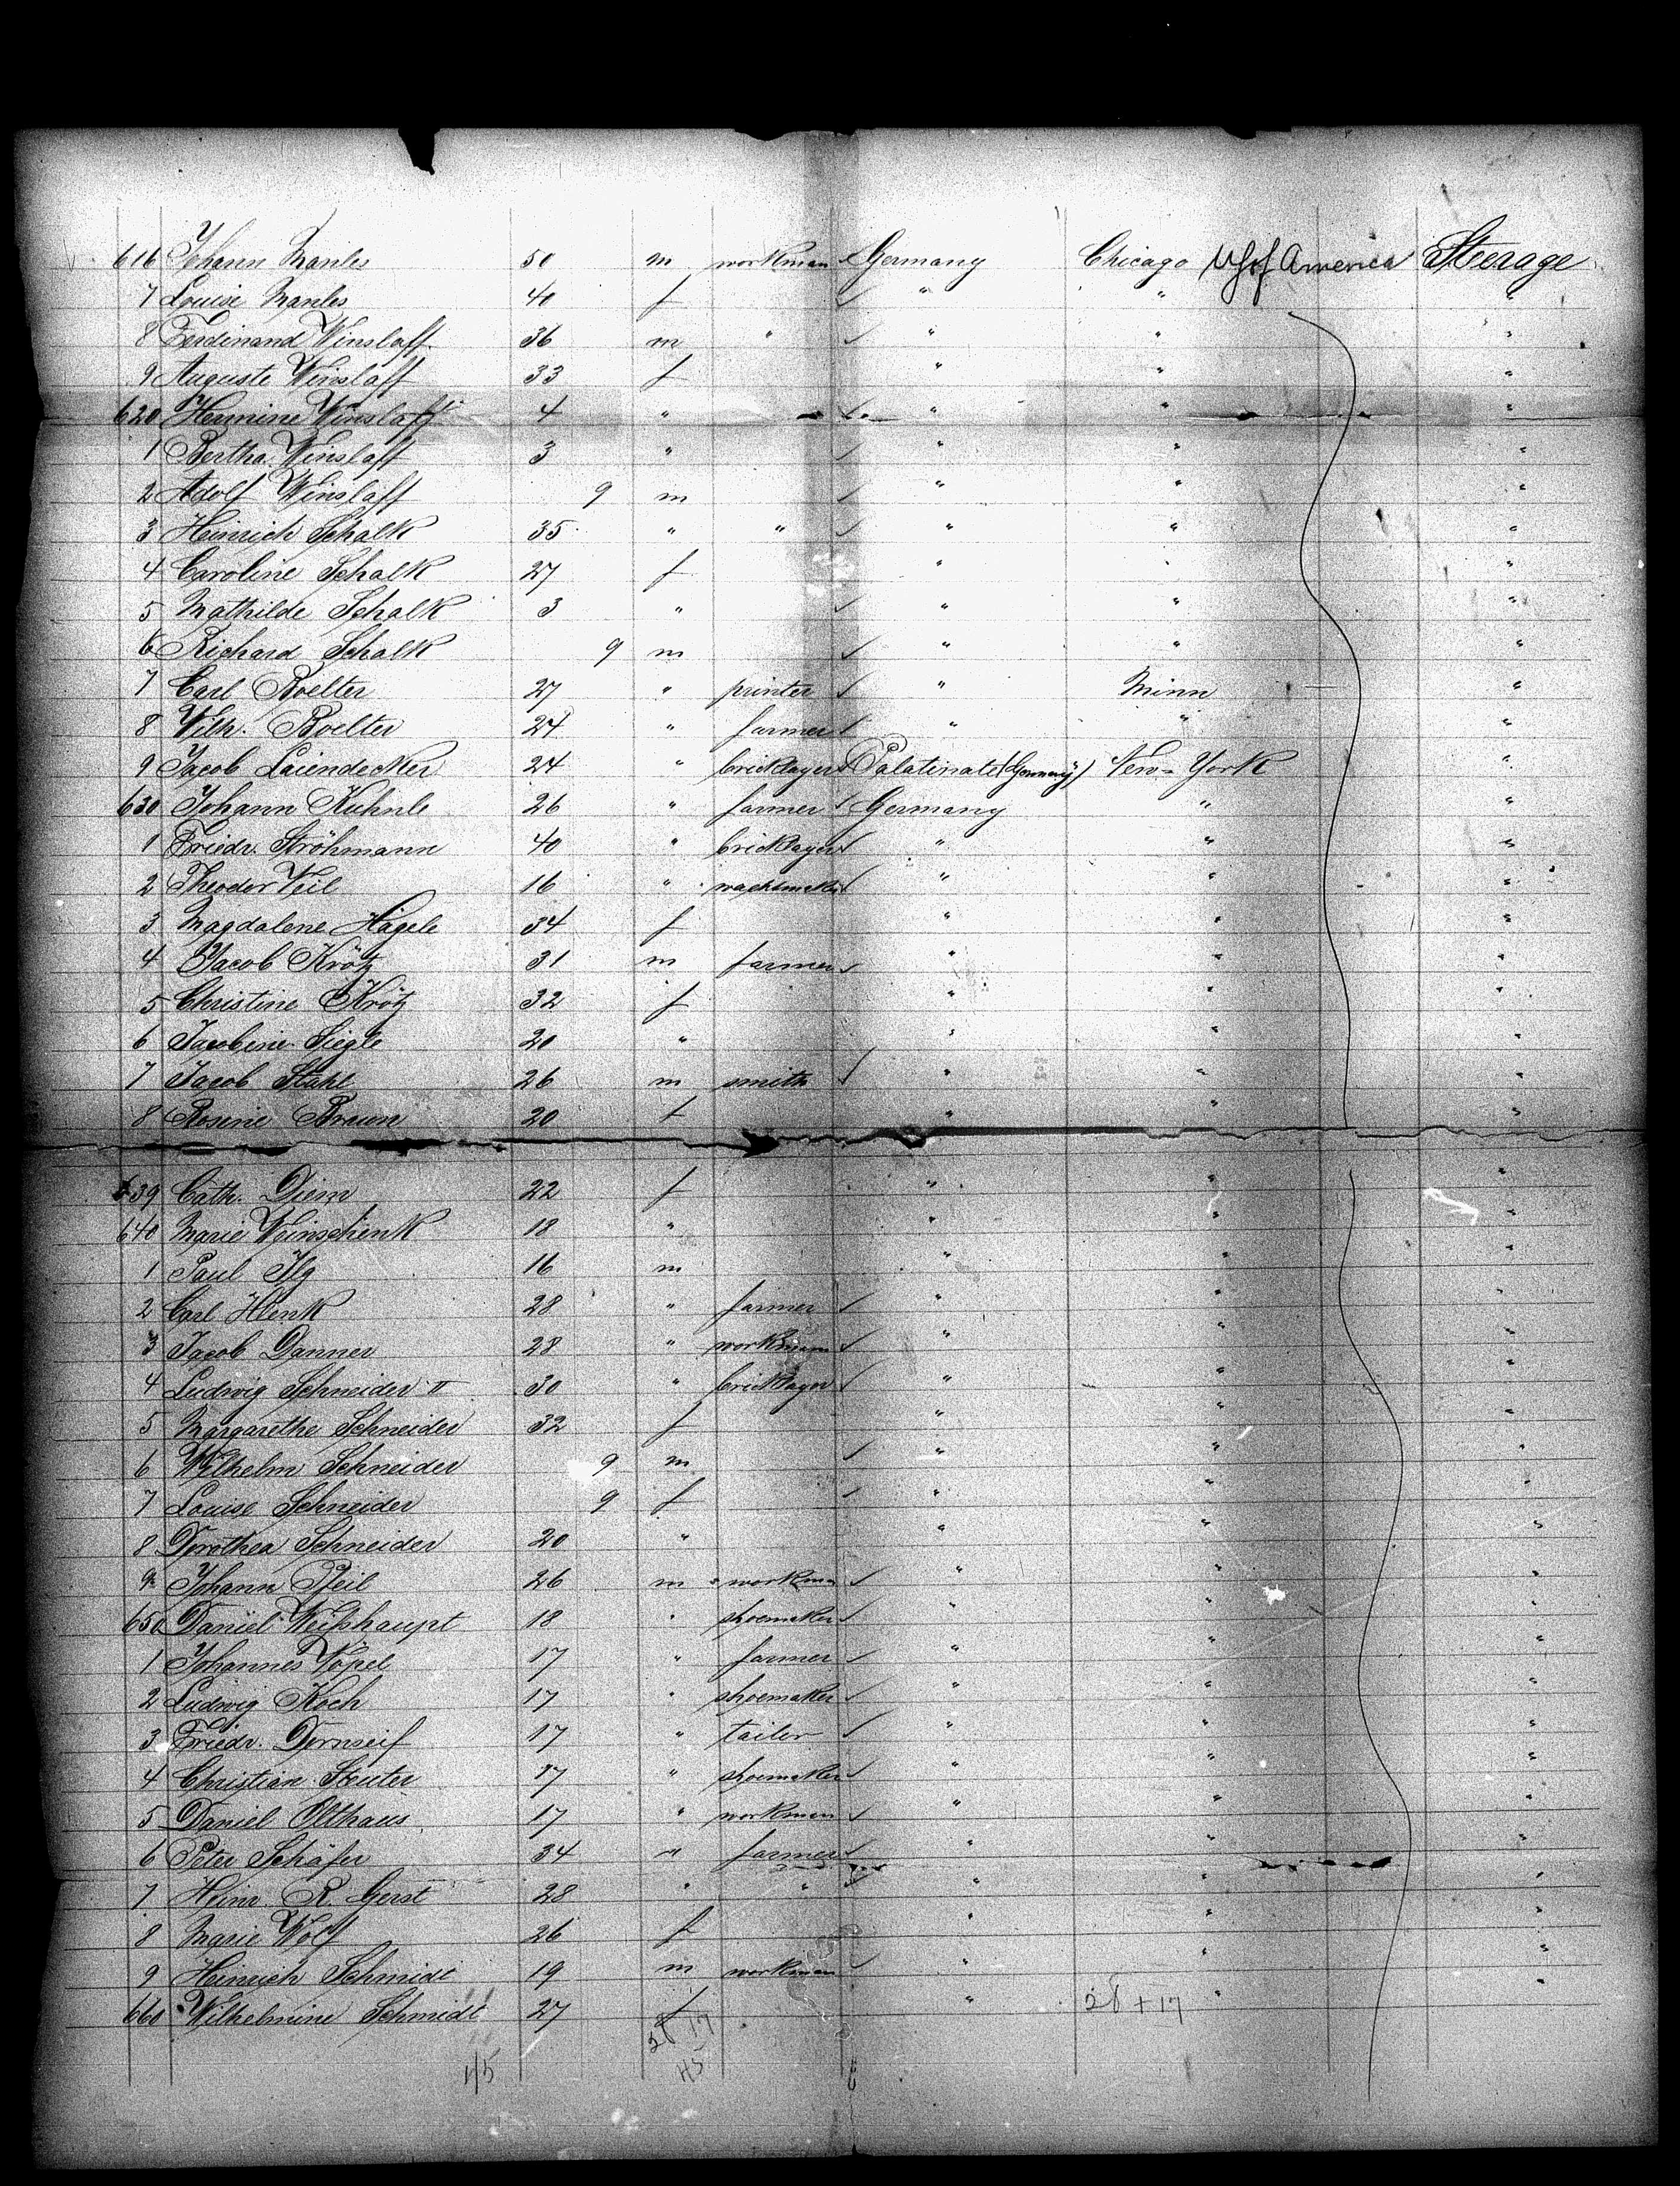 616 Johann Manles 50 m workman Germany Chicago US of America Steerage
7 Louise Manles 40 f " " "
8 Ferdinand Winslaff 36 m " " " "
9 Auguste Winslaff 33 f " " "
620 Hermine Winslaff 4 " " " "
1 Bertha Winslaff 3 " " " "
2 Adolf Winslaff 9 m " " "
3 Heinrich Schalk 35 " " " " "
4 Caroline Schalk 27 f " " "
5 Mathilde Schalk 3 " " " "
6 Richard Schalk 9 m " " "
7 Carl Boelter 27 " printer " Minn "
8 Wilh. Boelter 24 " farmer " " "
9 Jacob Laiendecker 24 " bricklayer Palatinate (Germany) New-York "
630 Johann Kuhnle 26 " farmer Germany " "
1 Friedr. Ströhmann 40 " bricklayer " " "
2 Theodor Veil 16 " " " "
3 Magdalene Hägele 34 f " " "
4 Jacob Krötz 31 m farmer " " "
5 Christine Krötz 32 f " " "
6 Jacobine Siegle 20 " " " "
7 Jacob Stahl 26 m smith " " "
8 Rosine Braun 20 f " " "
639 Cath. Diem 22 f " " "
640 Marie Weinschenk 18 " " " "
1 Paul Ilg 16 m " " "
2 Carl Henk 28 " farmer " " "
3 Jacob Danner 28 " workman " " "
4 Ludwig Schneider II 30 " bricklayer " " "
5 Margarethe Schneider 32 f " " "
6 Wilhelm Schneider 9 m " " "
7 Louise Schneider 9 f " " "
8 Dorothea Schneider 20 " " " "
9 Johann Pfeil 26 m workman " " "
650 Daniel Weißhaupt 18 " shoemaker " "
1 Johannes Vöpel 17 " farmer " " "
2 Ludwig Koch 17 " shoemaker " " "
3 Friedr. Dornseif 17 " tailor " " "
4 Christian Steuter 17 " shoemaker " " "
5 Daniel Olthaus 17 " workman " " "
6 Peter Schäfer 34 " farmer " " "
7 Heinr. R. Gerst 28 " " " " "
8 Marie Wolf 26 f " " "
9 Heinrich Schmidt 19 m workman " " "
660 Wilhelmine Schmidt 27 f " " "
28 + 17
28 17
45 45